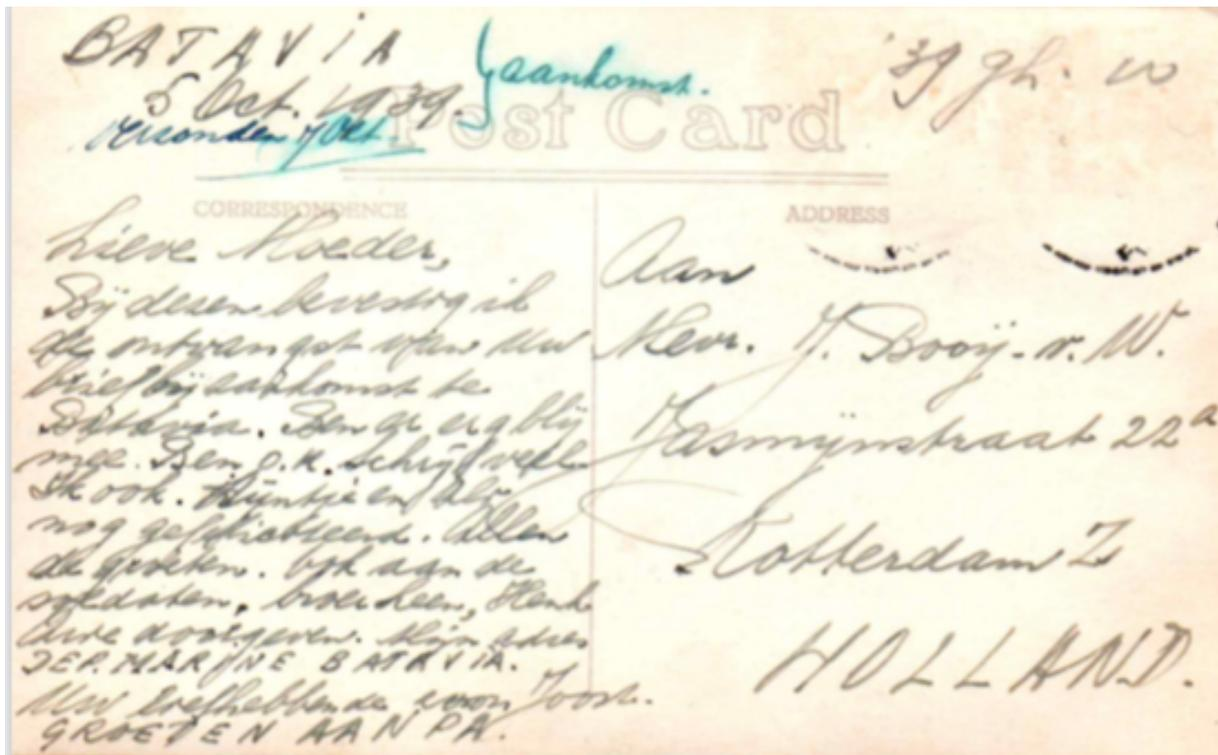 BATAVIA
5 Oct. 1939. } aankomst.
verzonden 7 Oct.
'39 gh. 10
Post Card
CORRESPONDENCE
ADDRESS
Lieve Moeder,
Bij dezen bevestig ik
de ontvangst van Uw
brief bij aankomst te
Batavia. Ben er erg blij
mee. Ben o.k. Schrijf veel
Ik ook. en
nog gefeliciteerd. Allen
de groeten. Ook aan de
soldaten, broer Leen, Henk
doorgeven. Mijn adres
DEP. MARINE BATAVIA.
Uw liefhebbende zoon Joost.
GROETEN AAN PA.
Aan
Mevr. J. Booij-v. W.
Jasmijnstraat 22a
Rotterdam Z
HOLLAND.